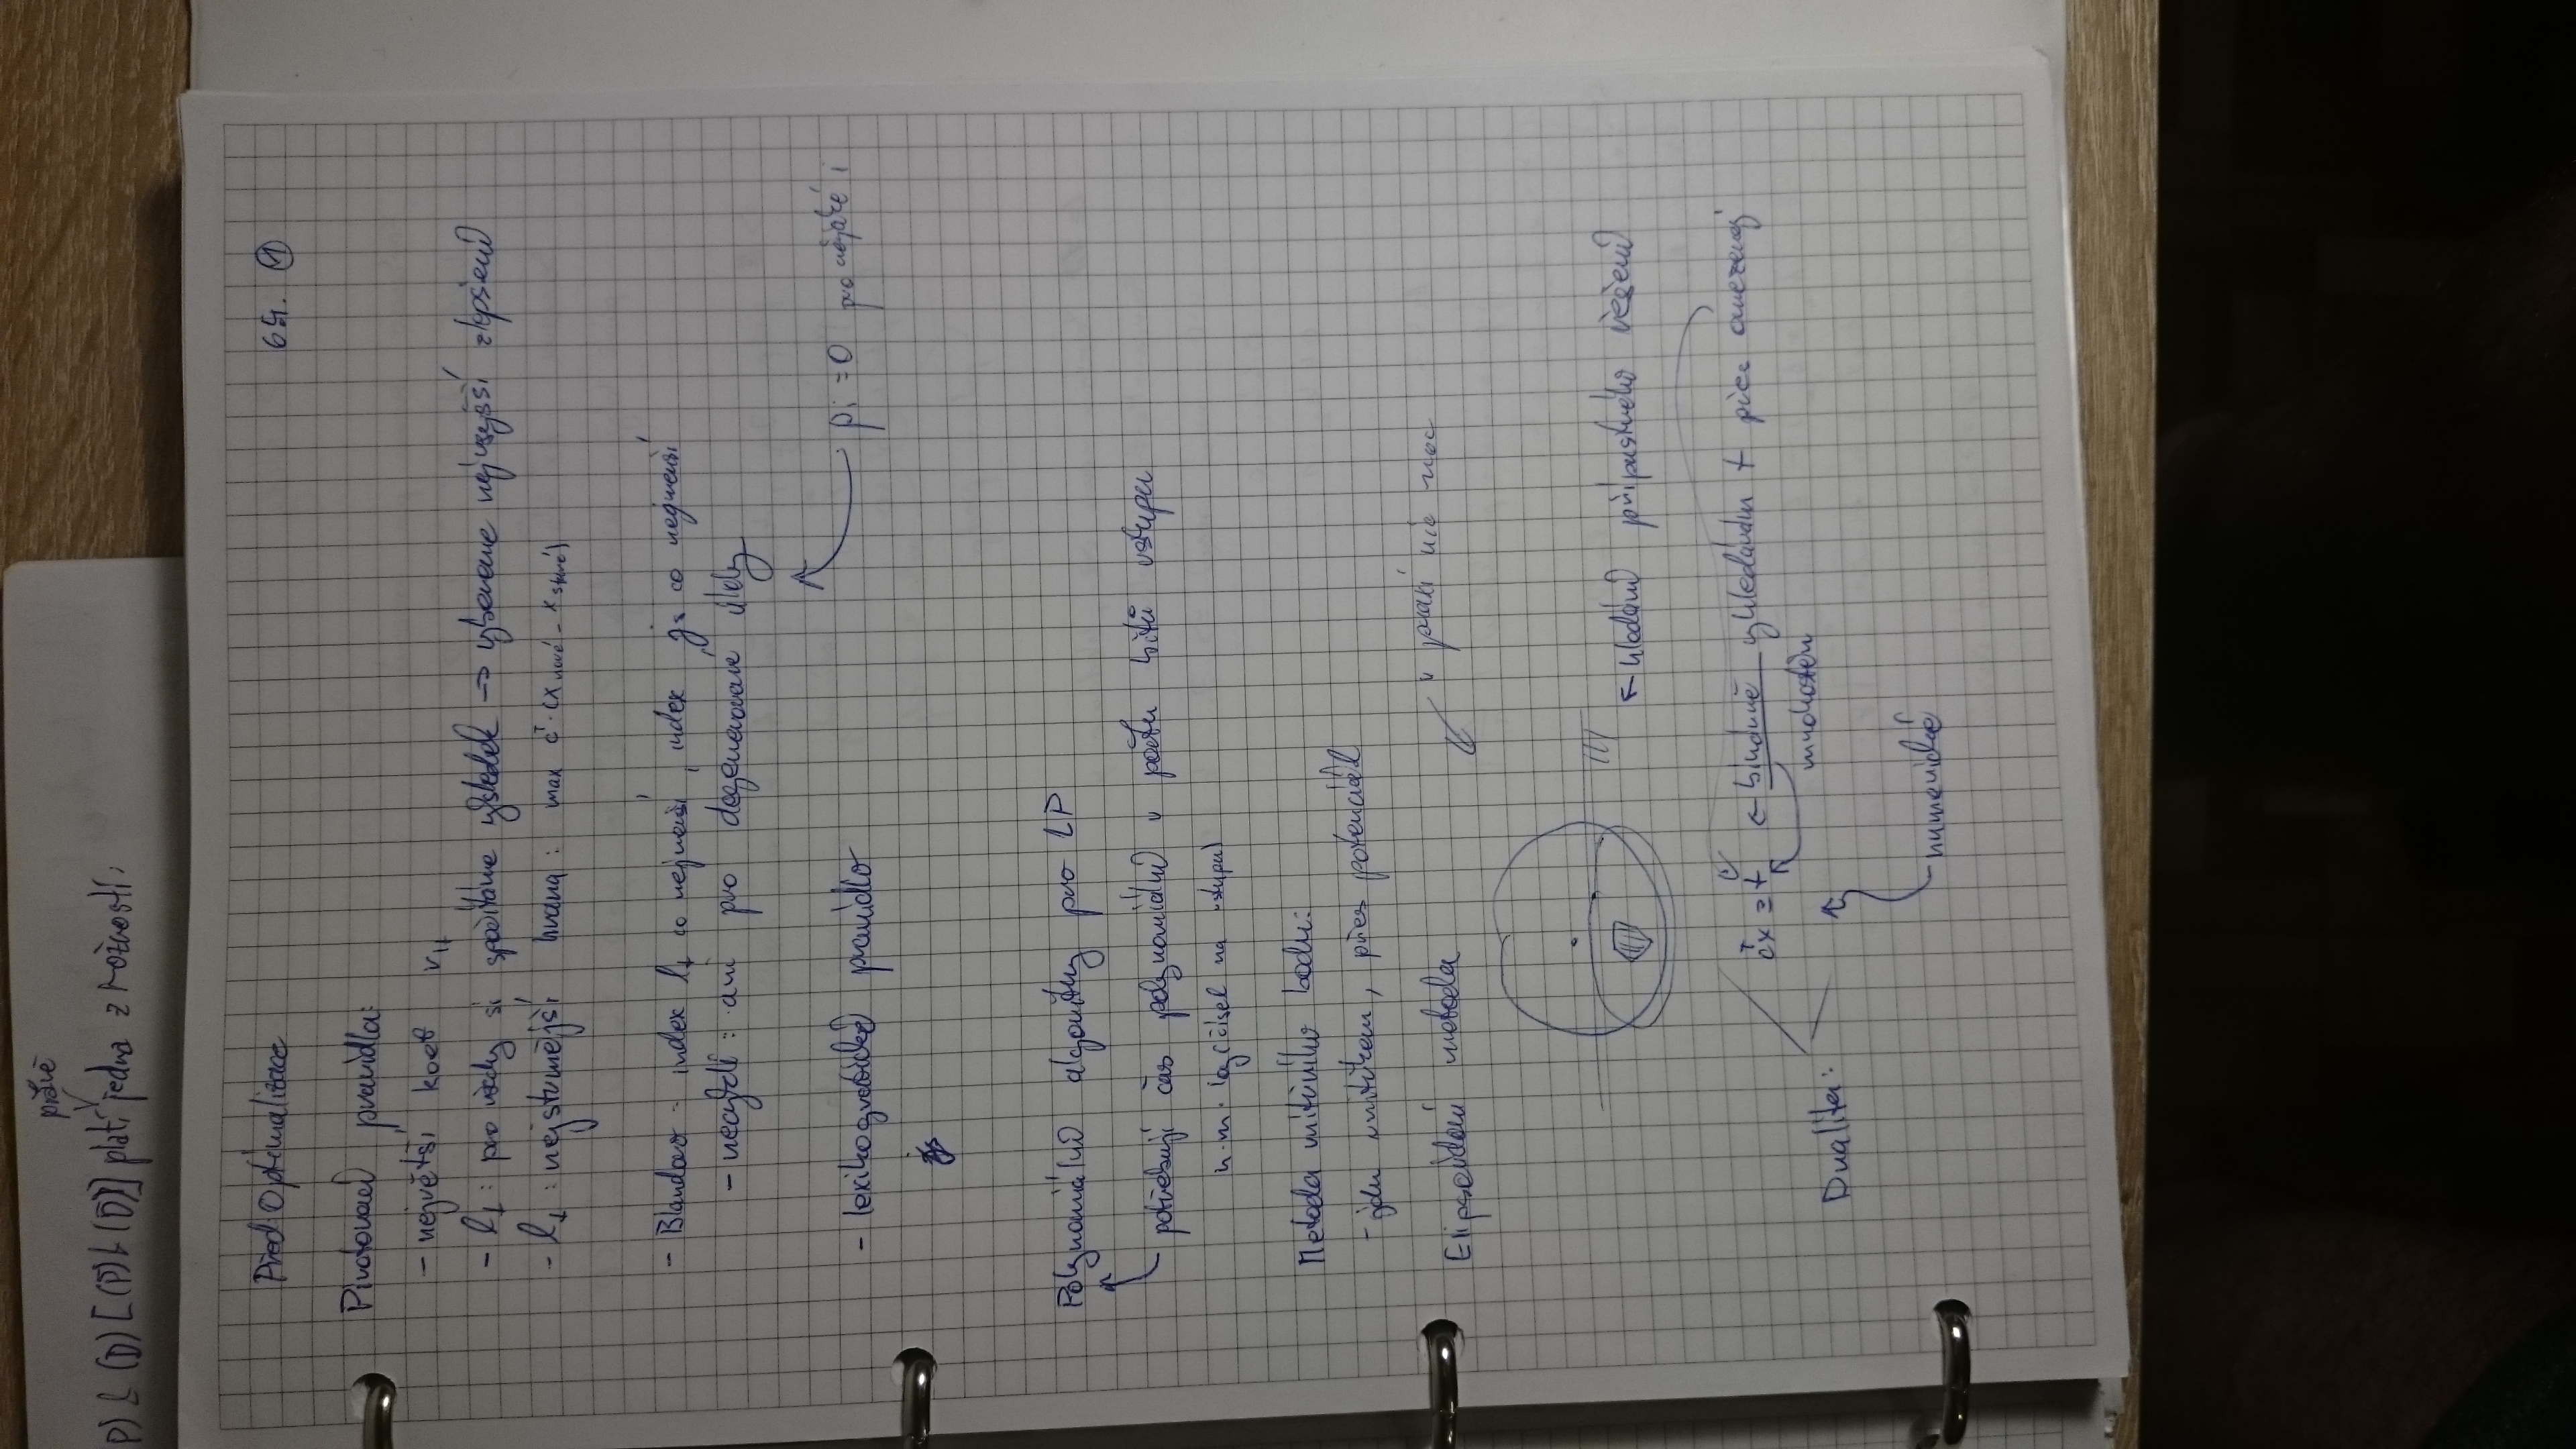 právě
P) L (D) [(P) L (D)] platí jedna z možností:
Před Optimalizace 65. 1
Pivotovací pravidla:
- největší koef
- l↓: pro vždy si spočítáme výsledek → vybereme nejvyšší zlepšení
- l↓: nejstrmější hrana: max cᵀ · (x nové - x staré)
- Blandovo: index l↓ co nejmenší, index js co nejmenší
- necyklí: ani pro degenerované úlohy
pi = 0 pro nějaké i
- lexikografické pravidlo
Polynomiální algoritmy pro LP
potřebují čas polynomiální v počtu bitů vstupu
n·m· log(čísel na vstupu)
Metoda vnitřního bodu:
- jdu vnitřkem, přes potenciál
Elipsoidová metoda
v praxi nic moc
← hledání přípustného řešení
cᵀx ≥ t ← binárně vyhledám t přes omezený
množství
Dualita:
numerické